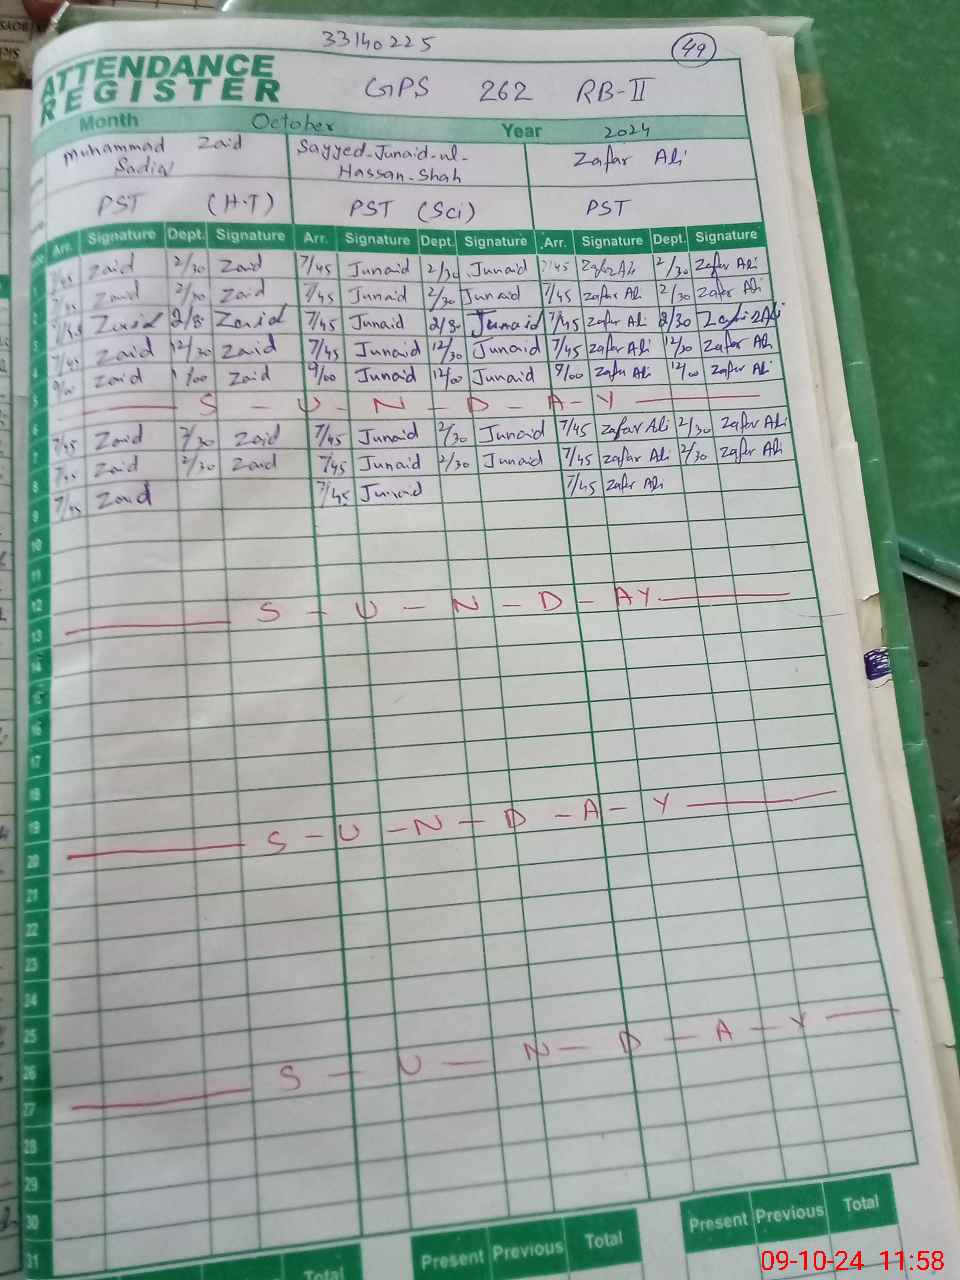 33140225
49
ATTENDANCE
REGISTER
GPS 262 RB-II
Month October Year 2024
Muhammad Zaid Sayyed-Junaid-ul- Zafar Ali
Hassan-Shah
PST (H.T) PST (Sci) PST
Arr. Signature Dept. Signature Arr. Signature Dept. Signature Arr. Signature Dept. Signature
1 7/45 Zaid 2/30 Zaid 7/45 Junaid 2/30 Junaid 7/45 Zafar Ali 2/30 Zafar Ali
2 Zaid Zaid 7/45 Junaid 2/30 Junaid 7/45 Zafar Ali 2/30 Zafar Ali
3 Zaid Zaid 7/45 Junaid Junaid 7/45 Zafar Ali 2/30 Zafar Ali
4 7/45 Zaid 12/30 Zaid 7/45 Junaid 12/30 Junaid 7/45 Zafar Ali 12/30 Zafar Ali
5 9/00 Zaid Zaid 9/00 Junaid 12/00 Junaid 9/00 Zafar Ali 12/00 Zafar Ali
6 S - U - N - D - A - Y
7 7/45 Zaid 2/30 Zaid 7/45 Junaid 2/30 Junaid 7/45 Zafar Ali 2/30 Zafar Ali
8 7/45 Zaid 2/30 Zaid 7/45 Junaid 2/30 Junaid 7/45 Zafar Ali 2/30 Zafar Ali
9 7/45 Zaid 7/45 Junaid 7/45 Zafar Ali
10
11
12
13 S - U - N - D - AY
14
15
16
17
18
19
20 S - U - N - D - A - Y
21
22
23
24
25
26
27 S - U - N - D - A - Y
28
29
30
31
Total Present Previous Total Present Previous Total
09-10-24 11:58